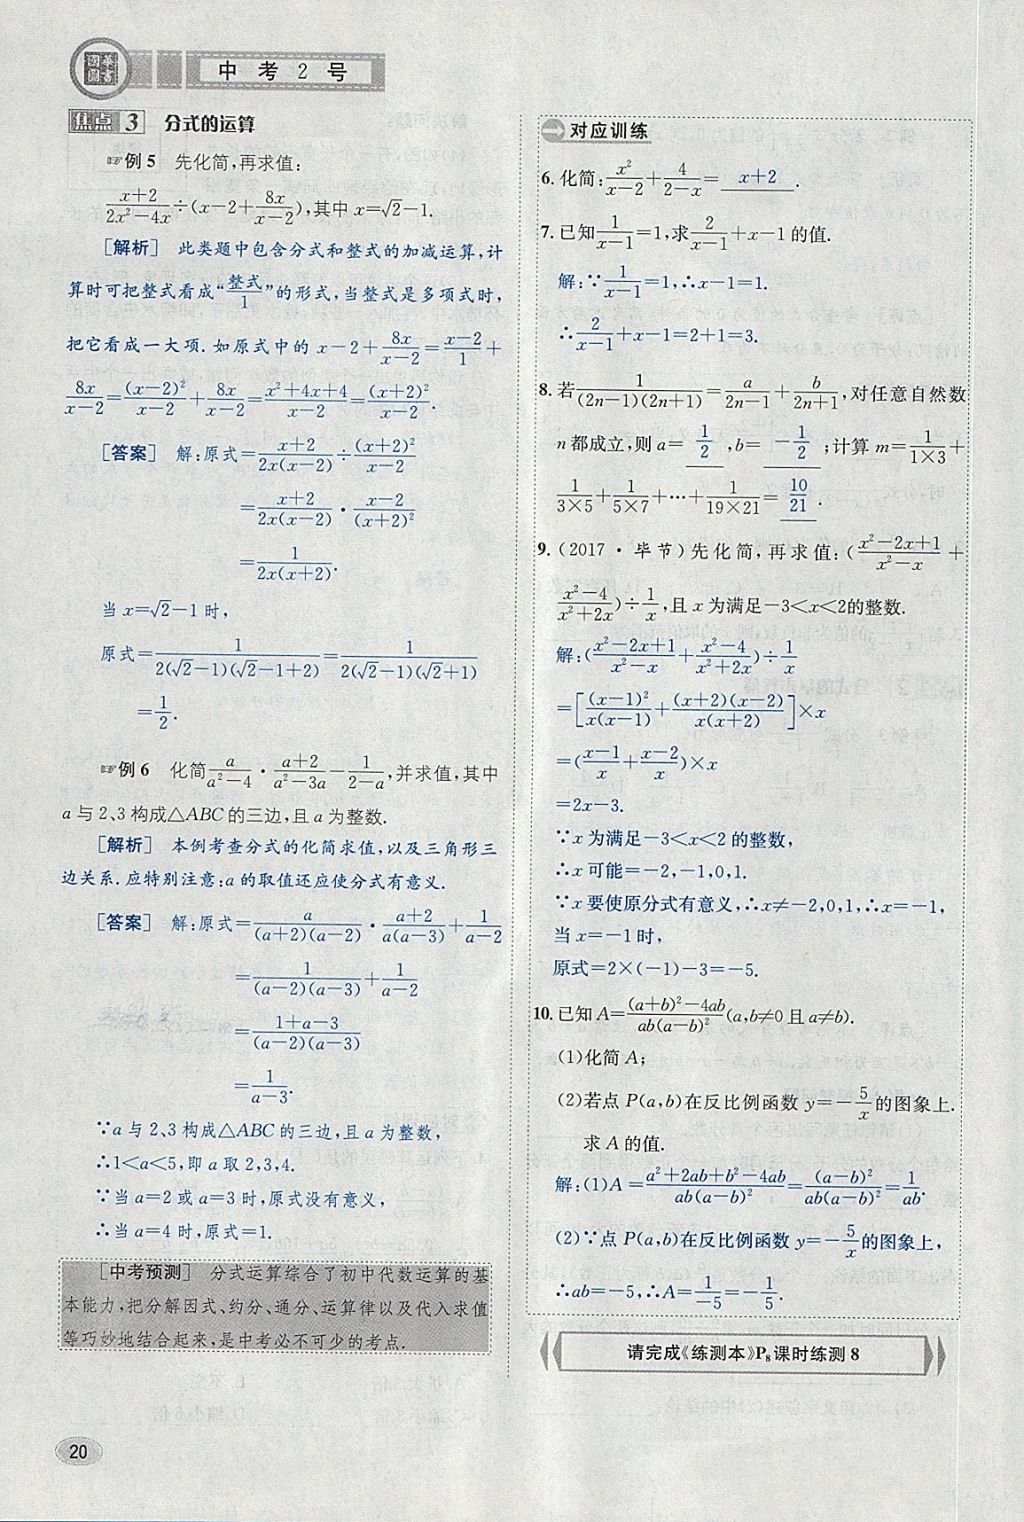 中考2号
焦点3 分式的运算
☞例5 先化简,再求值:
$\frac{x+2}{2x^2-4x}÷(x-2+\frac{8x}{x-2})$,其中$x=\sqrt{2}-1$.
[解析] 此类题中包含分式和整式的加减运算,计
算时可把整式看成“$\frac{整式}{1}$”的形式,当整式是多项式时,
把它看成一大项.如原式中的$x-2+\frac{8x}{x-2}=\frac{x-2}{1}+$
$\frac{8x}{x-2}=\frac{(x-2)^2}{x-2}+\frac{8x}{x-2}=\frac{x^2+4x+4}{x-2}=\frac{(x+2)^2}{x-2}$.
[答案] 解:原式$=\frac{x+2}{2x(x-2)}÷\frac{(x+2)^2}{x-2}$
$=\frac{x+2}{2x(x-2)}·\frac{x-2}{(x+2)^2}$
$=\frac{1}{2x(x+2)}$.
当$x=\sqrt{2}-1$时,
原式$=\frac{1}{2(\sqrt{2}-1)(\sqrt{2}-1+2)}=\frac{1}{2(\sqrt{2}-1)(\sqrt{2}+1)}$
$=\frac{1}{2}$.
☞例6 化简$\frac{a}{a^2-4}·\frac{a+2}{a^2-3a}-\frac{1}{2-a}$,并求值,其中
a与2、3构成△ABC的三边,且a为整数.
[解析] 本例考查分式的化简求值,以及三角形三
边关系.应特别注意:a的取值还应使分式有意义.
[答案] 解:原式$=\frac{a}{(a+2)(a-2)}·\frac{a+2}{a(a-3)}+\frac{1}{a-2}$
$=\frac{1}{(a-2)(a-3)}+\frac{1}{a-2}$
$=\frac{1+a-3}{(a-2)(a-3)}$
$=\frac{1}{a-3}$.
∵a与2、3构成△ABC的三边,且a为整数,
∴1<a<5,即a取2,3,4.
∵当a=2或a=3时,原式没有意义,
∴当a=4时,原式=1.
[中考预测] 分式运算综合了初中代数运算的基
本能力,把分解因式、约分、通分、运算律以及代入求值
等巧妙地结合起来,是中考必不可少的考点.
20
对应训练
6.化简:$\frac{x^2}{x-2}+\frac{4}{2-x}=$ x+2 .
7.已知$\frac{1}{x-1}=1$,求$\frac{2}{x-1}+x-1$的值.
解:∵$\frac{1}{x-1}=1$,∴x-1=1.
∴$\frac{2}{x-1}+x-1=2+1=3$.
8.若$\frac{1}{(2n-1)(2n+1)}=\frac{a}{2n-1}+\frac{b}{2n+1}$,对任意自然数
n都成立,则a= $\frac{1}{2}$ ,b= $-\frac{1}{2}$ ;计算$m=\frac{1}{1×3}+$
$\frac{1}{3×5}+\frac{1}{5×7}+…+\frac{1}{19×21}=$ $\frac{10}{21}$ .
9.(2017·毕节)先化简,再求值:$(\frac{x^2-2x+1}{x^2-x}+$
$\frac{x^2-4}{x^2+2x})÷\frac{1}{x}$,且x为满足-3<x<2的整数.
解:$(\frac{x^2-2x+1}{x^2-x}+\frac{x^2-4}{x^2+2x})÷\frac{1}{x}$
$=[\frac{(x-1)^2}{x(x-1)}+\frac{(x+2)(x-2)}{x(x+2)}]×x$
$=(\frac{x-1}{x}+\frac{x-2}{x})×x$
=2x-3.
∵x为满足-3<x<2的整数,
∴x可能=-2,-1,0,1.
∵x要使原分式有意义,∴x≠-2,0,1,∴x=-1,
当x=-1时,
原式=2×(-1)-3=-5.
10.已知$A=\frac{(a+b)^2-4ab}{ab(a-b)^2}$(a,b≠0且a≠b).
(1)化简A;
(2)若点P(a,b)在反比例函数$y=-\frac{5}{x}$的图象上.
求A的值.
解:(1)$A=\frac{a^2+2ab+b^2-4ab}{ab(a-b)^2}=\frac{(a-b)^2}{ab(a-b)^2}=\frac{1}{ab}$.
(2)∵点P(a,b)在反比例函数$y=-\frac{5}{x}$的图象上,
∴ab=-5,∴$A=\frac{1}{-5}=-\frac{1}{5}$.
请完成《练测本》P₈课时练测8